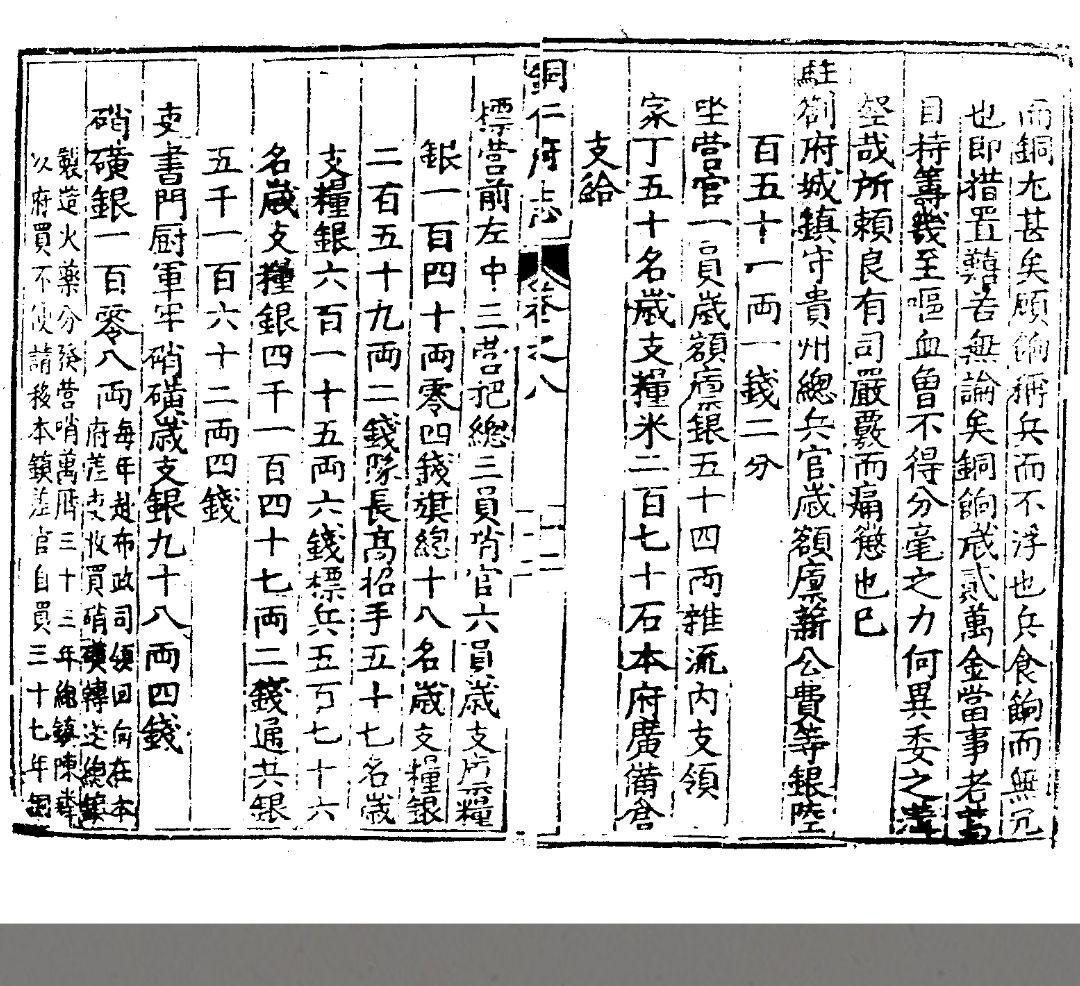 而銅尤甚矣顧餉稱兵而不浮也兵食餉而無冗
也即措置囏苦無論矣銅餉歲貳萬金當事老
目持籌幾至嘔血曾不得分毫之力何異委之
壑哉所賴良有司嚴覈而痛懲也已
駐劄府城鎮守貴州總兵官歲額廩薪公費等銀陸
百五十一両一錢二分
坐營官一員歲額廩銀五十四両雜流內支領
家丁五十名歲支糧米二百七十石本府廣備倉
支給
銅仁府志 卷之八 十二
標營前左中三營把總三員哨官六員歲支廩糧
銀一百四十両零四錢旗總十八名歲支糧銀
二百五十九両二錢隊長高招手五十七名歲
支糧銀六百一十五両六錢標兵五百七十六
名歲支糧銀四千一百四十七両二錢通共銀
五千一百六十二両四錢
吏書門厨軍牢硝磺歲支銀九十八両四錢
硝磺銀一百零八両每年赴布政司領回向在本
府差支收買硝磺轉送總鎮
製造火藥分發營哨萬曆三十三年總鎮陳
以府買不便請移本鎮差官自買三十七年